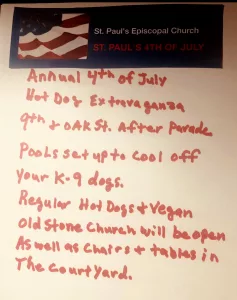 St. Paul's Episcopal Church
ST. PAUL S 4TH OF JULY
Annual 4th of July
Hot Dog Extravaganza
9th & OAK St. After Parade
Pools set up to cool off
your K-9 dogs.
Regular Hot Dogs & Vegan
Old Stone Church will be open
As well as chairs & tables in
The Court Yard.